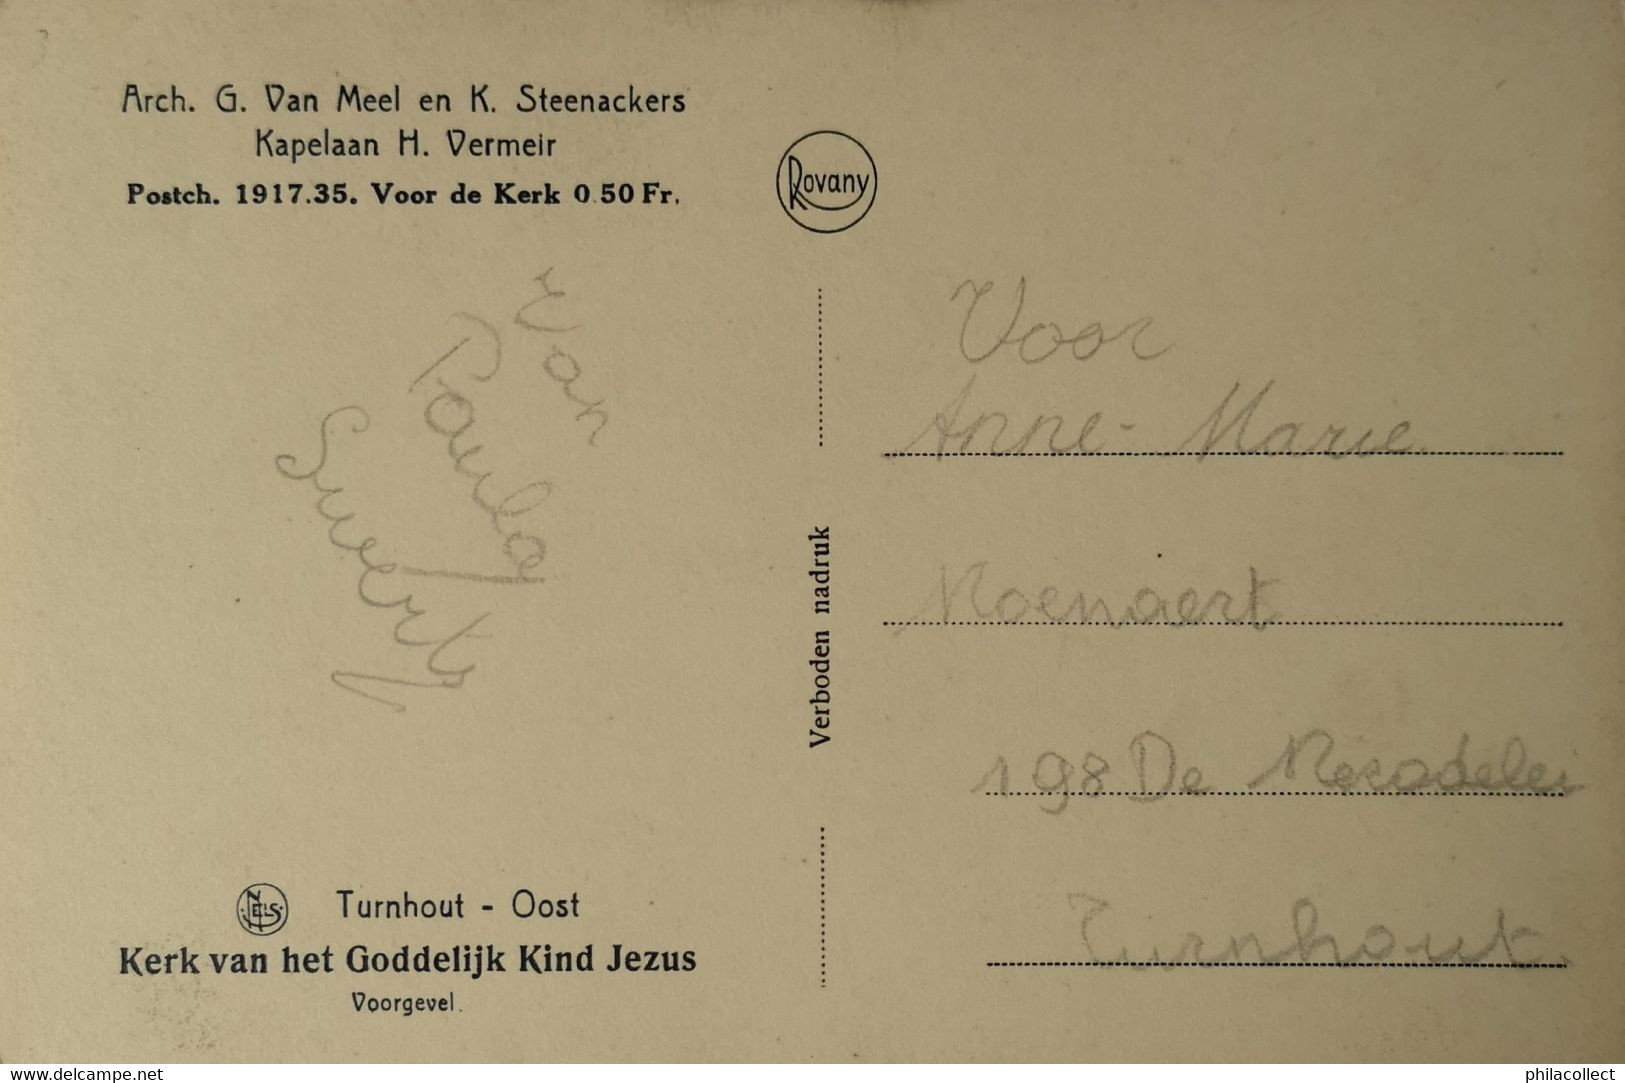 Arch. G. Van Meel en K. Steenackers
Kapelaan H. Vermeir
Postch. 1917.35. Voor de Kerk 0.50 Fr.
Rovany
Van
Paula
Sweerts
Verboden nadruk
Voor
Anne-Marie
Moenaert
198 De Merodelei
Turnhout.
NELS
Turnhout - Oost
Kerk van het Goddelijk Kind Jezus
Voorgevel.
www.delcampe.net
philacollect